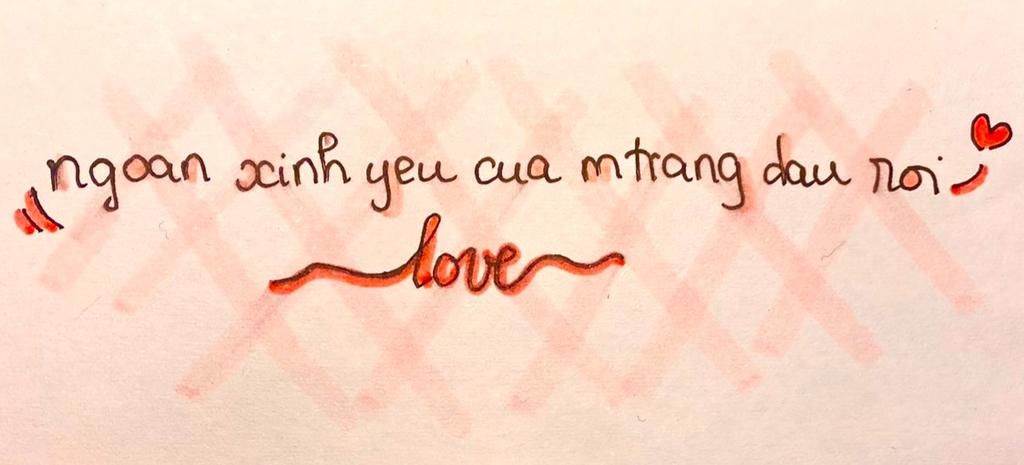 ngoan xinh yeu cua mtrang dau roi
love